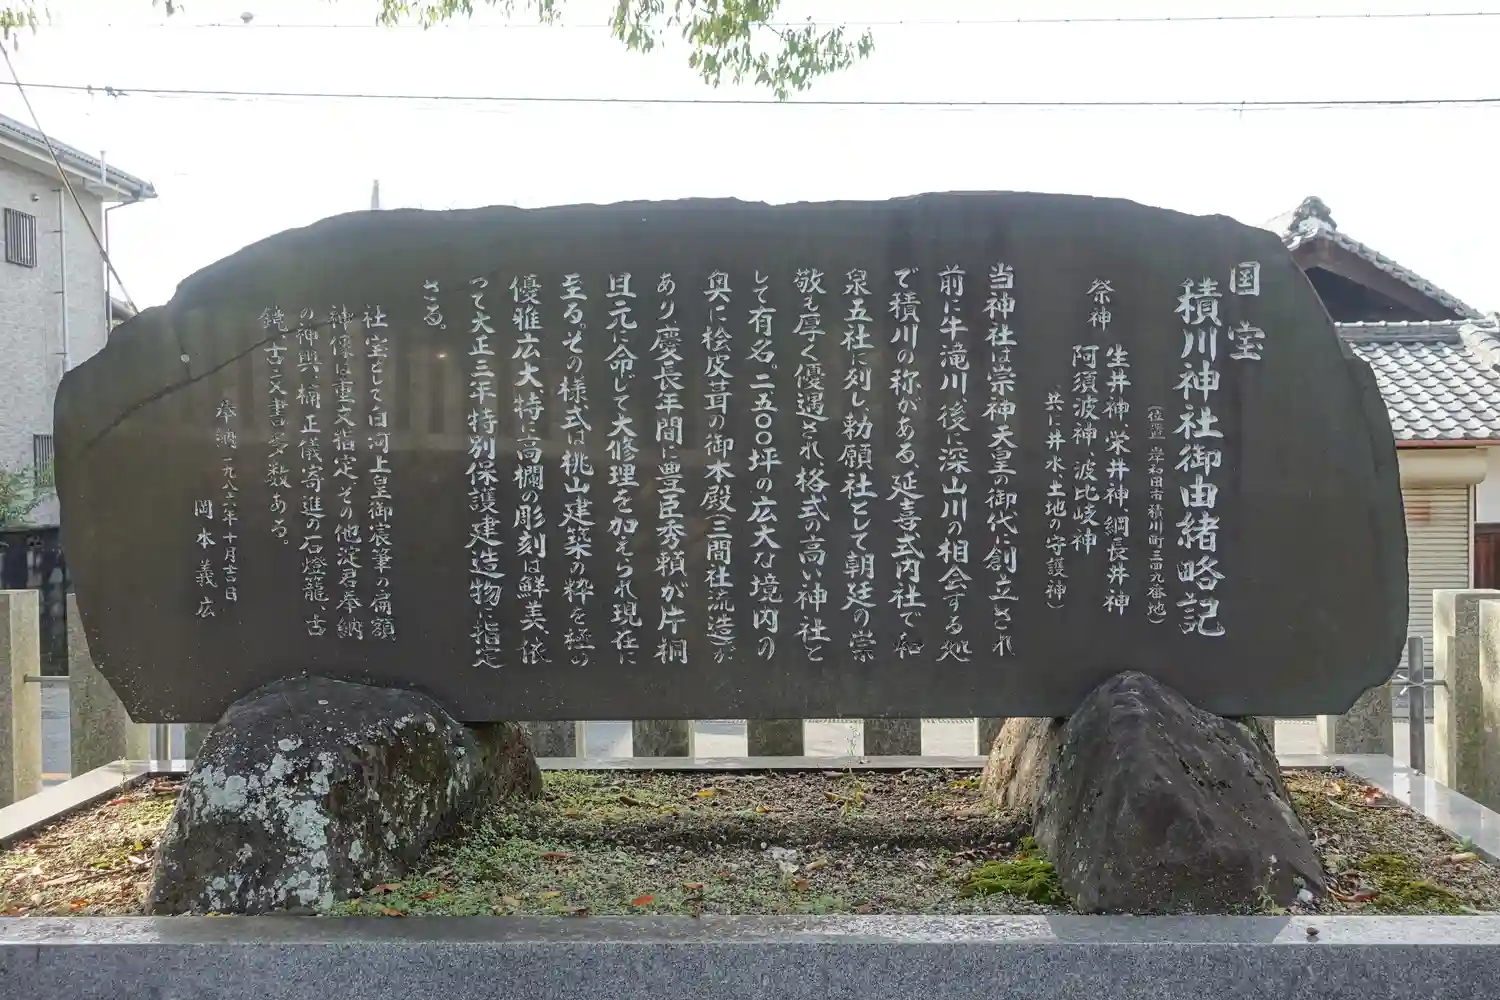 国宝
積川神社御由緒略記
(位置 岸和田市積川町三四九番地)
祭神 生井神、栄井神、綱長井神
阿須波神、波比岐神
(共に井水、土地の守護神)
当神社は崇神天皇の御代に創立され
前に牛滝川、後に深山川の相会する処
で積川の称がある。延喜式内社で和
泉五社に列し、勅願社として朝廷の崇
敬も厚く優遇され格式の高い神社と
して有名。二五〇〇坪の広大な境内の
奥に桧皮葺の御本殿(三間社流造)が
あり慶長年間に豊臣秀頼が片桐
且元に命じて大修理を加えられ現在に
至る。その様式は桃山建築の粋を極め
優雅広大、特に高欄の彫刻は鮮美、依
って大正三年特別保護建造物に指定
さる。
社宝として白河上皇御宸筆の扁額
神像は重文指定、その他淀君奉納
の神輿、楠正儀寄進の石燈籠、古
鏡、古文書多数ある。
奉納 一九八二年十月吉日、
岡本義広